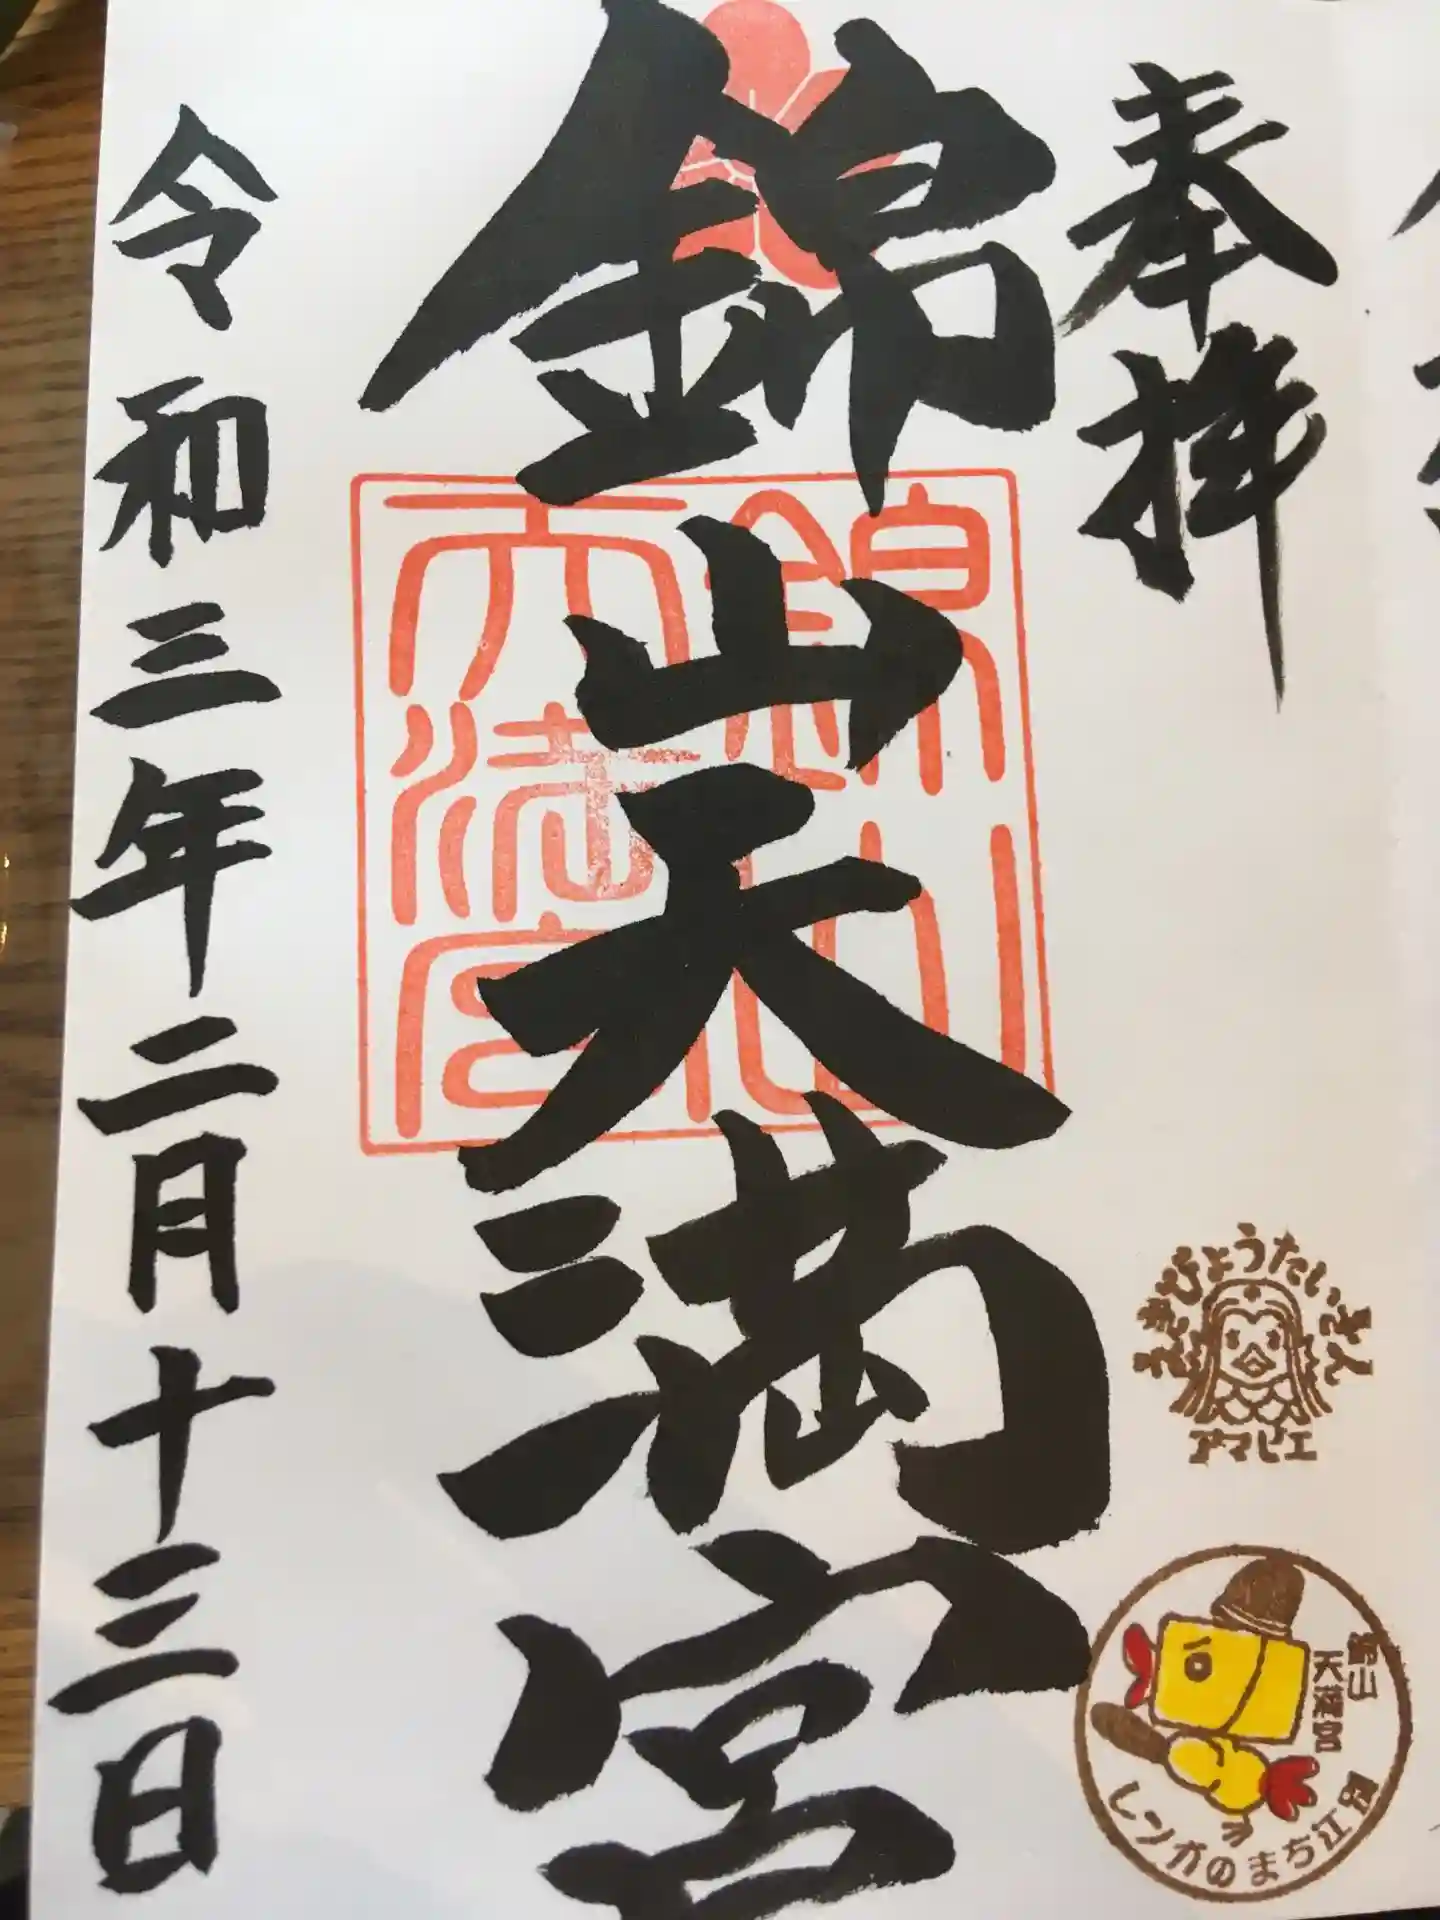 奉拝
錦山天満宮
令和三年二月十三日
錦山
天満宮
えきびょうたいさん
アマビエ
錦山
天満宮
レンガのまち江別